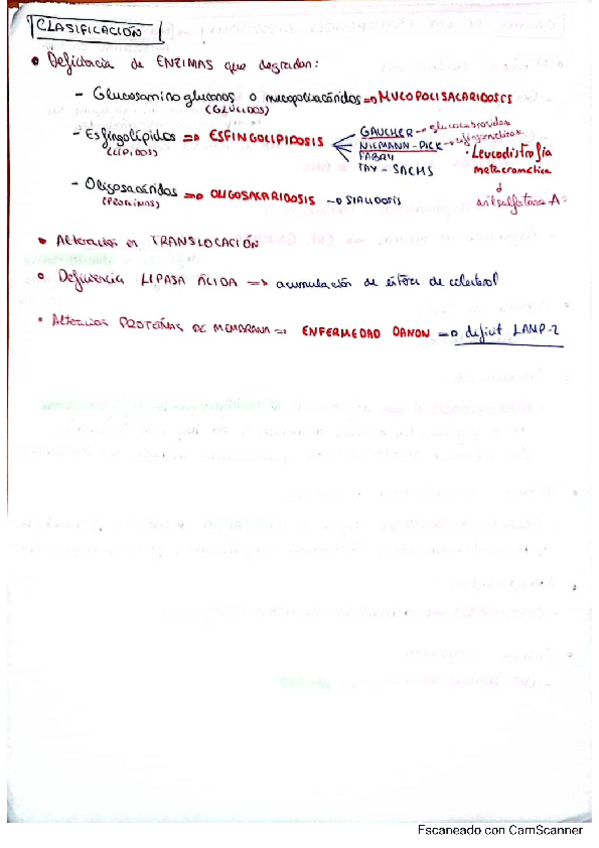 CLASIFICACIÓN
• Deficiencia de ENZIMAS que degradan:
- Glucosaminoglucanos o mucopolisacáridos => MUCOPOLISACARIDOSIS
(GLÚCIDOS)
- Esfingolípidos => ESFINGOLIPIDOSIS
(LÍPIDOS)
GAUCHER → glucocerebrosidasa
NIEMANN-PICK → esfingomielinasa
FABRY
TAY-SACHS
• Leucodistrofia
metacromática
arilsulfatasa A
- Oligosacáridos => OLIGOSACARIDOSIS → SIALIDOSIS
(PROTEÍNAS)
• Alteración en TRANSLOCACIÓN
• Deficiencia LIPASA ÁCIDA => acumulación de ésteres de colesterol
• Alteración PROTEÍNAS DE MEMBRANA => ENFERMEDAD DANON => déficit LAMP-2
Escaneado con CamScanner